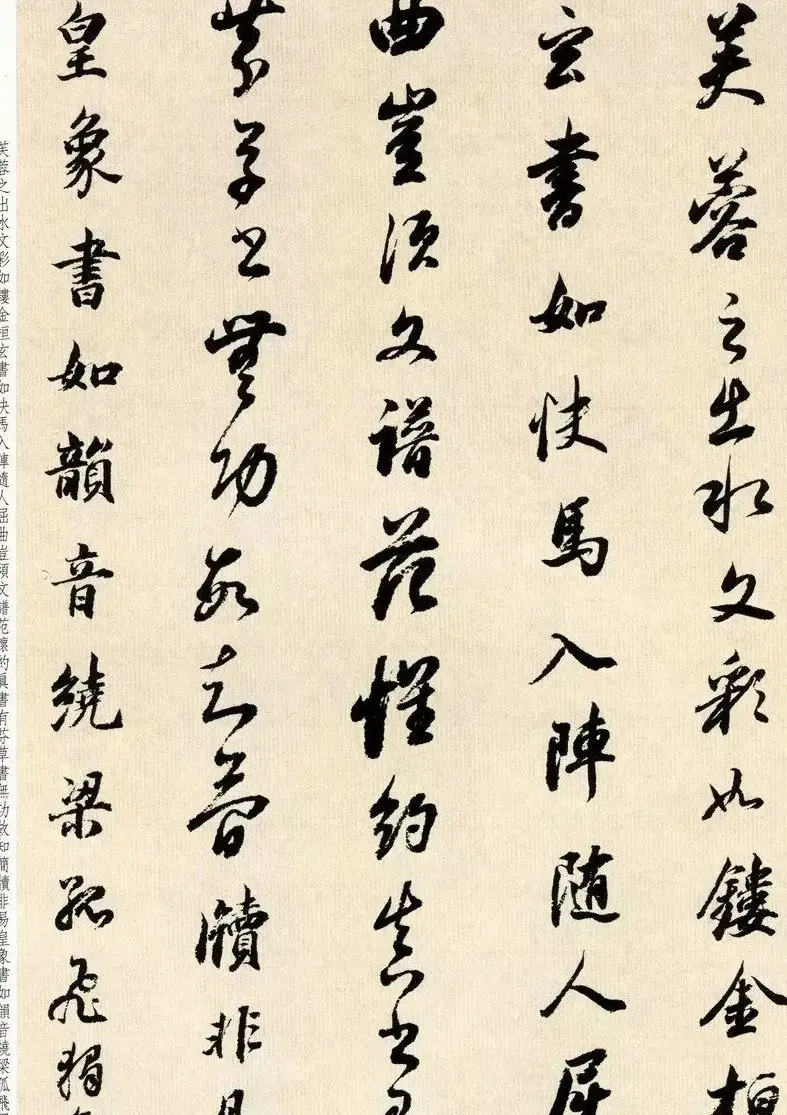 芙蓉之出水文彩如鏤金桓
玄書如快馬入陣隨人屈
曲豈須文譜范懷約真書有
芬草書無功故知簡牘非易
皇象書如韻音繞梁孤飛獨
芙蓉之出水文彩如鏤金桓玄書如快馬入陣隨人屈曲豈須文譜范懷約真書有芬草書無功故知簡牘非易皇象書如韻音繞梁孤飛